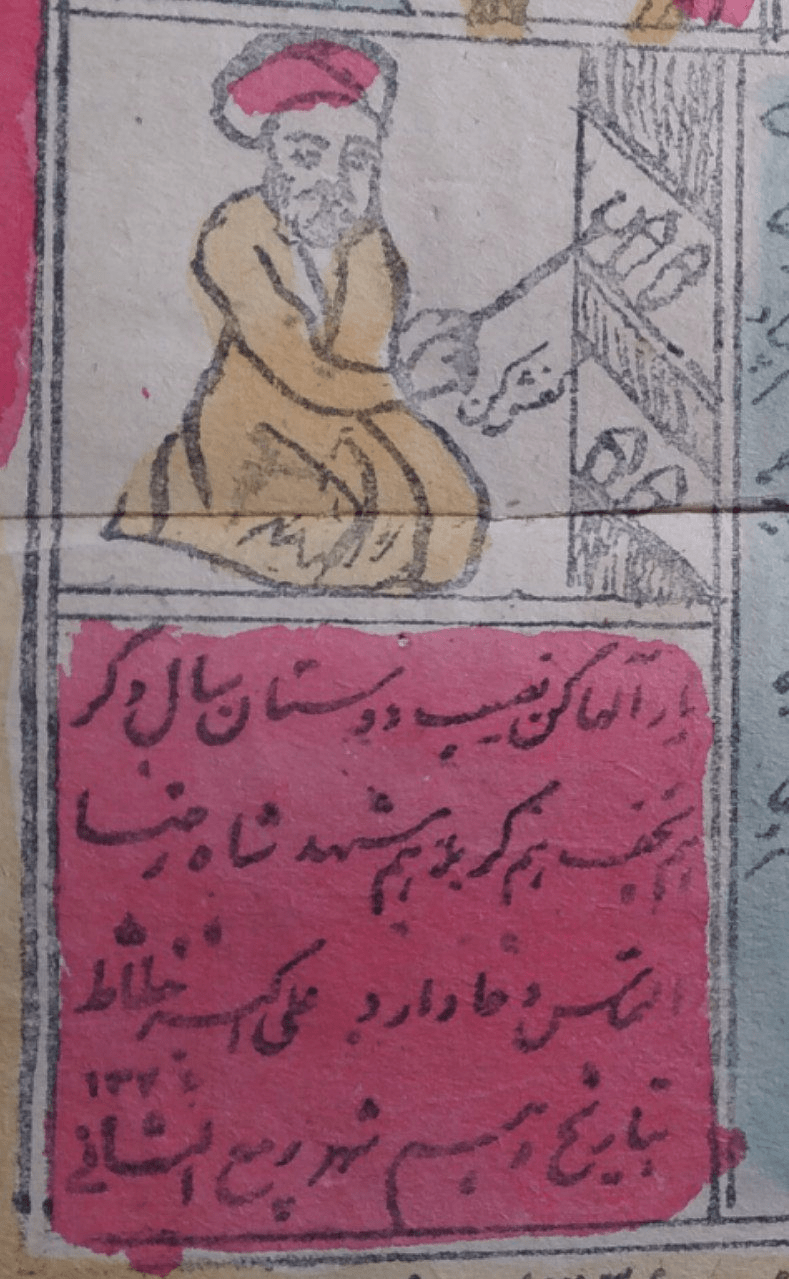 کفش کن
بار آلها کن نصیب دوستان سال دگر
هم نجف هم کربلا هم مشهد شاه رضا
التماس دعا دارد علی اکبر خطاط
بتاریخ شهر ربیع الثانی